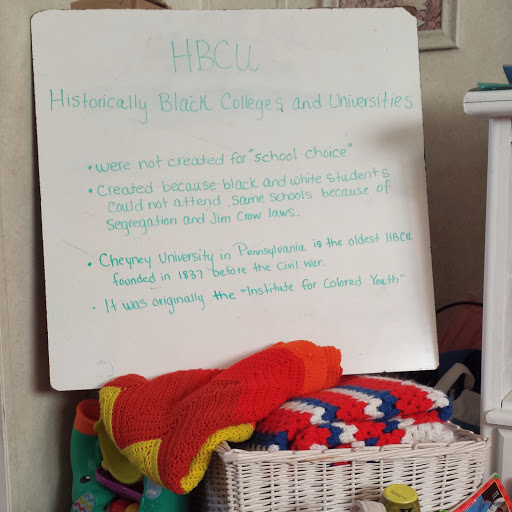 HBCU
Historically Black Colleges and Universities
• were not created for "school choice"
• Created because black and white students
could not attend same schools because of
segregation and Jim Crow laws.
• Cheyney University in Pennsylvania is the oldest HBCU
founded in 1837 before the Civil War.
• It was originally the "Institute for Colored Youth"